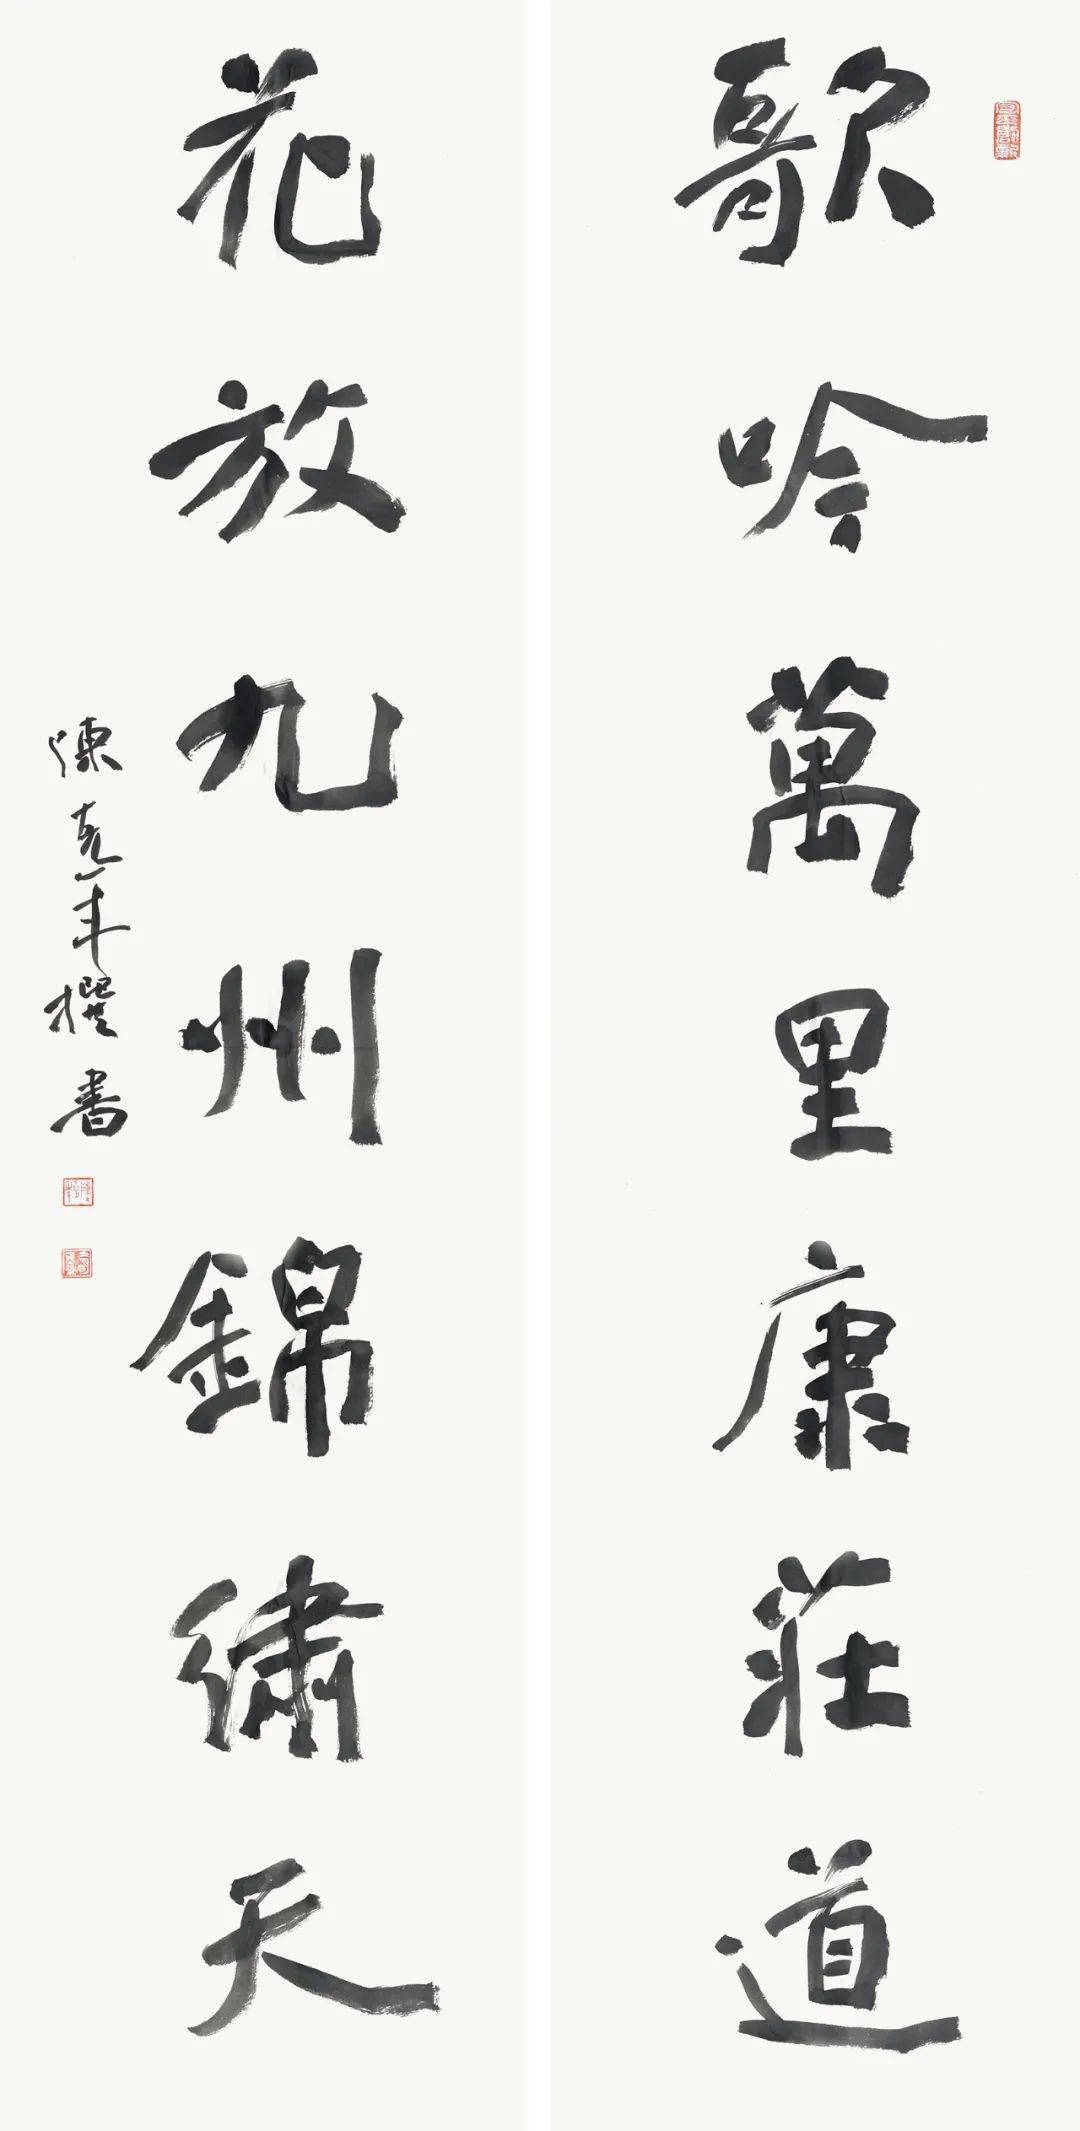 歌吟萬里康莊道
花放九州錦繡天
陳克年撰書